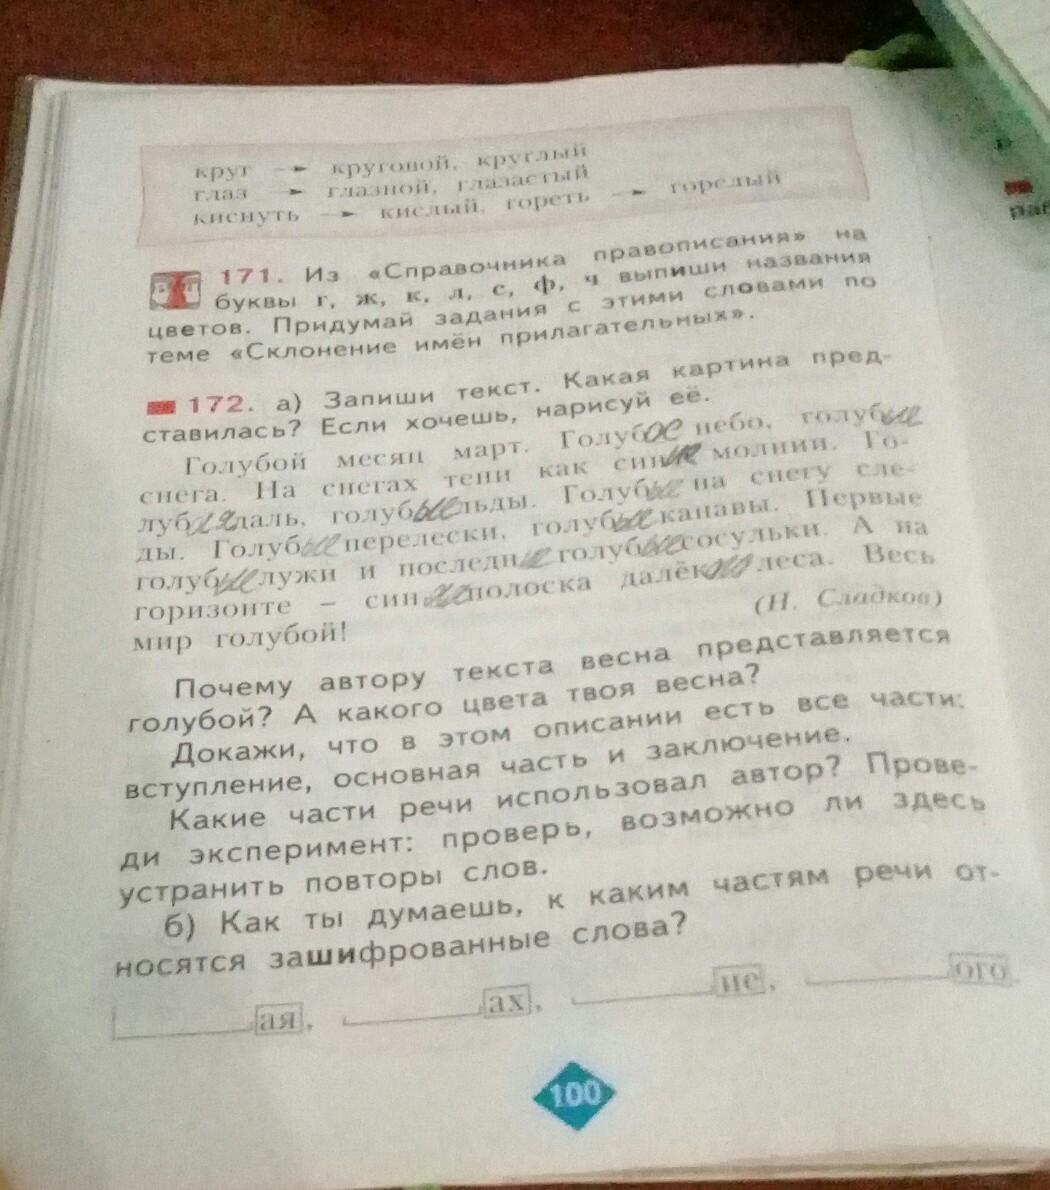 круг → круговой, круглый
глаз → глазной, глазастый
киснуть → кислый, гореть → горелый
171. Из «Справочника правописания» на
буквы г, ж, к, л, с, ф, ч выпиши названия
цветов. Придумай задания с этими словами по
теме «Склонение имён прилагательных».
172. а) Запиши текст. Какая картина пред-
ставилась? Если хочешь, нарисуй её.
Голубой месяц март. Голубое небо, голубые
снега. На снегах тени как синие молнии. Го-
лубая даль, голубые льды. Голубые на снегу сле-
ды. Голубые перелески, голубые канавы. Первые
голубые лужи и последние голубые сосульки. А на
горизонте – синяя полоска далёкого леса. Весь
мир голубой!
(Н. Сладков)
Почему автору текста весна представляется
голубой? А какого цвета твоя весна?
Докажи, что в этом описании есть все части:
вступление, основная часть и заключение.
Какие части речи использовал автор? Прове-
ди эксперимент: проверь, возможно ли здесь
устранить повторы слов.
б) Как ты думаешь, к каким частям речи от-
носятся зашифрованные слова?
ая, ах, ие, ого.
100